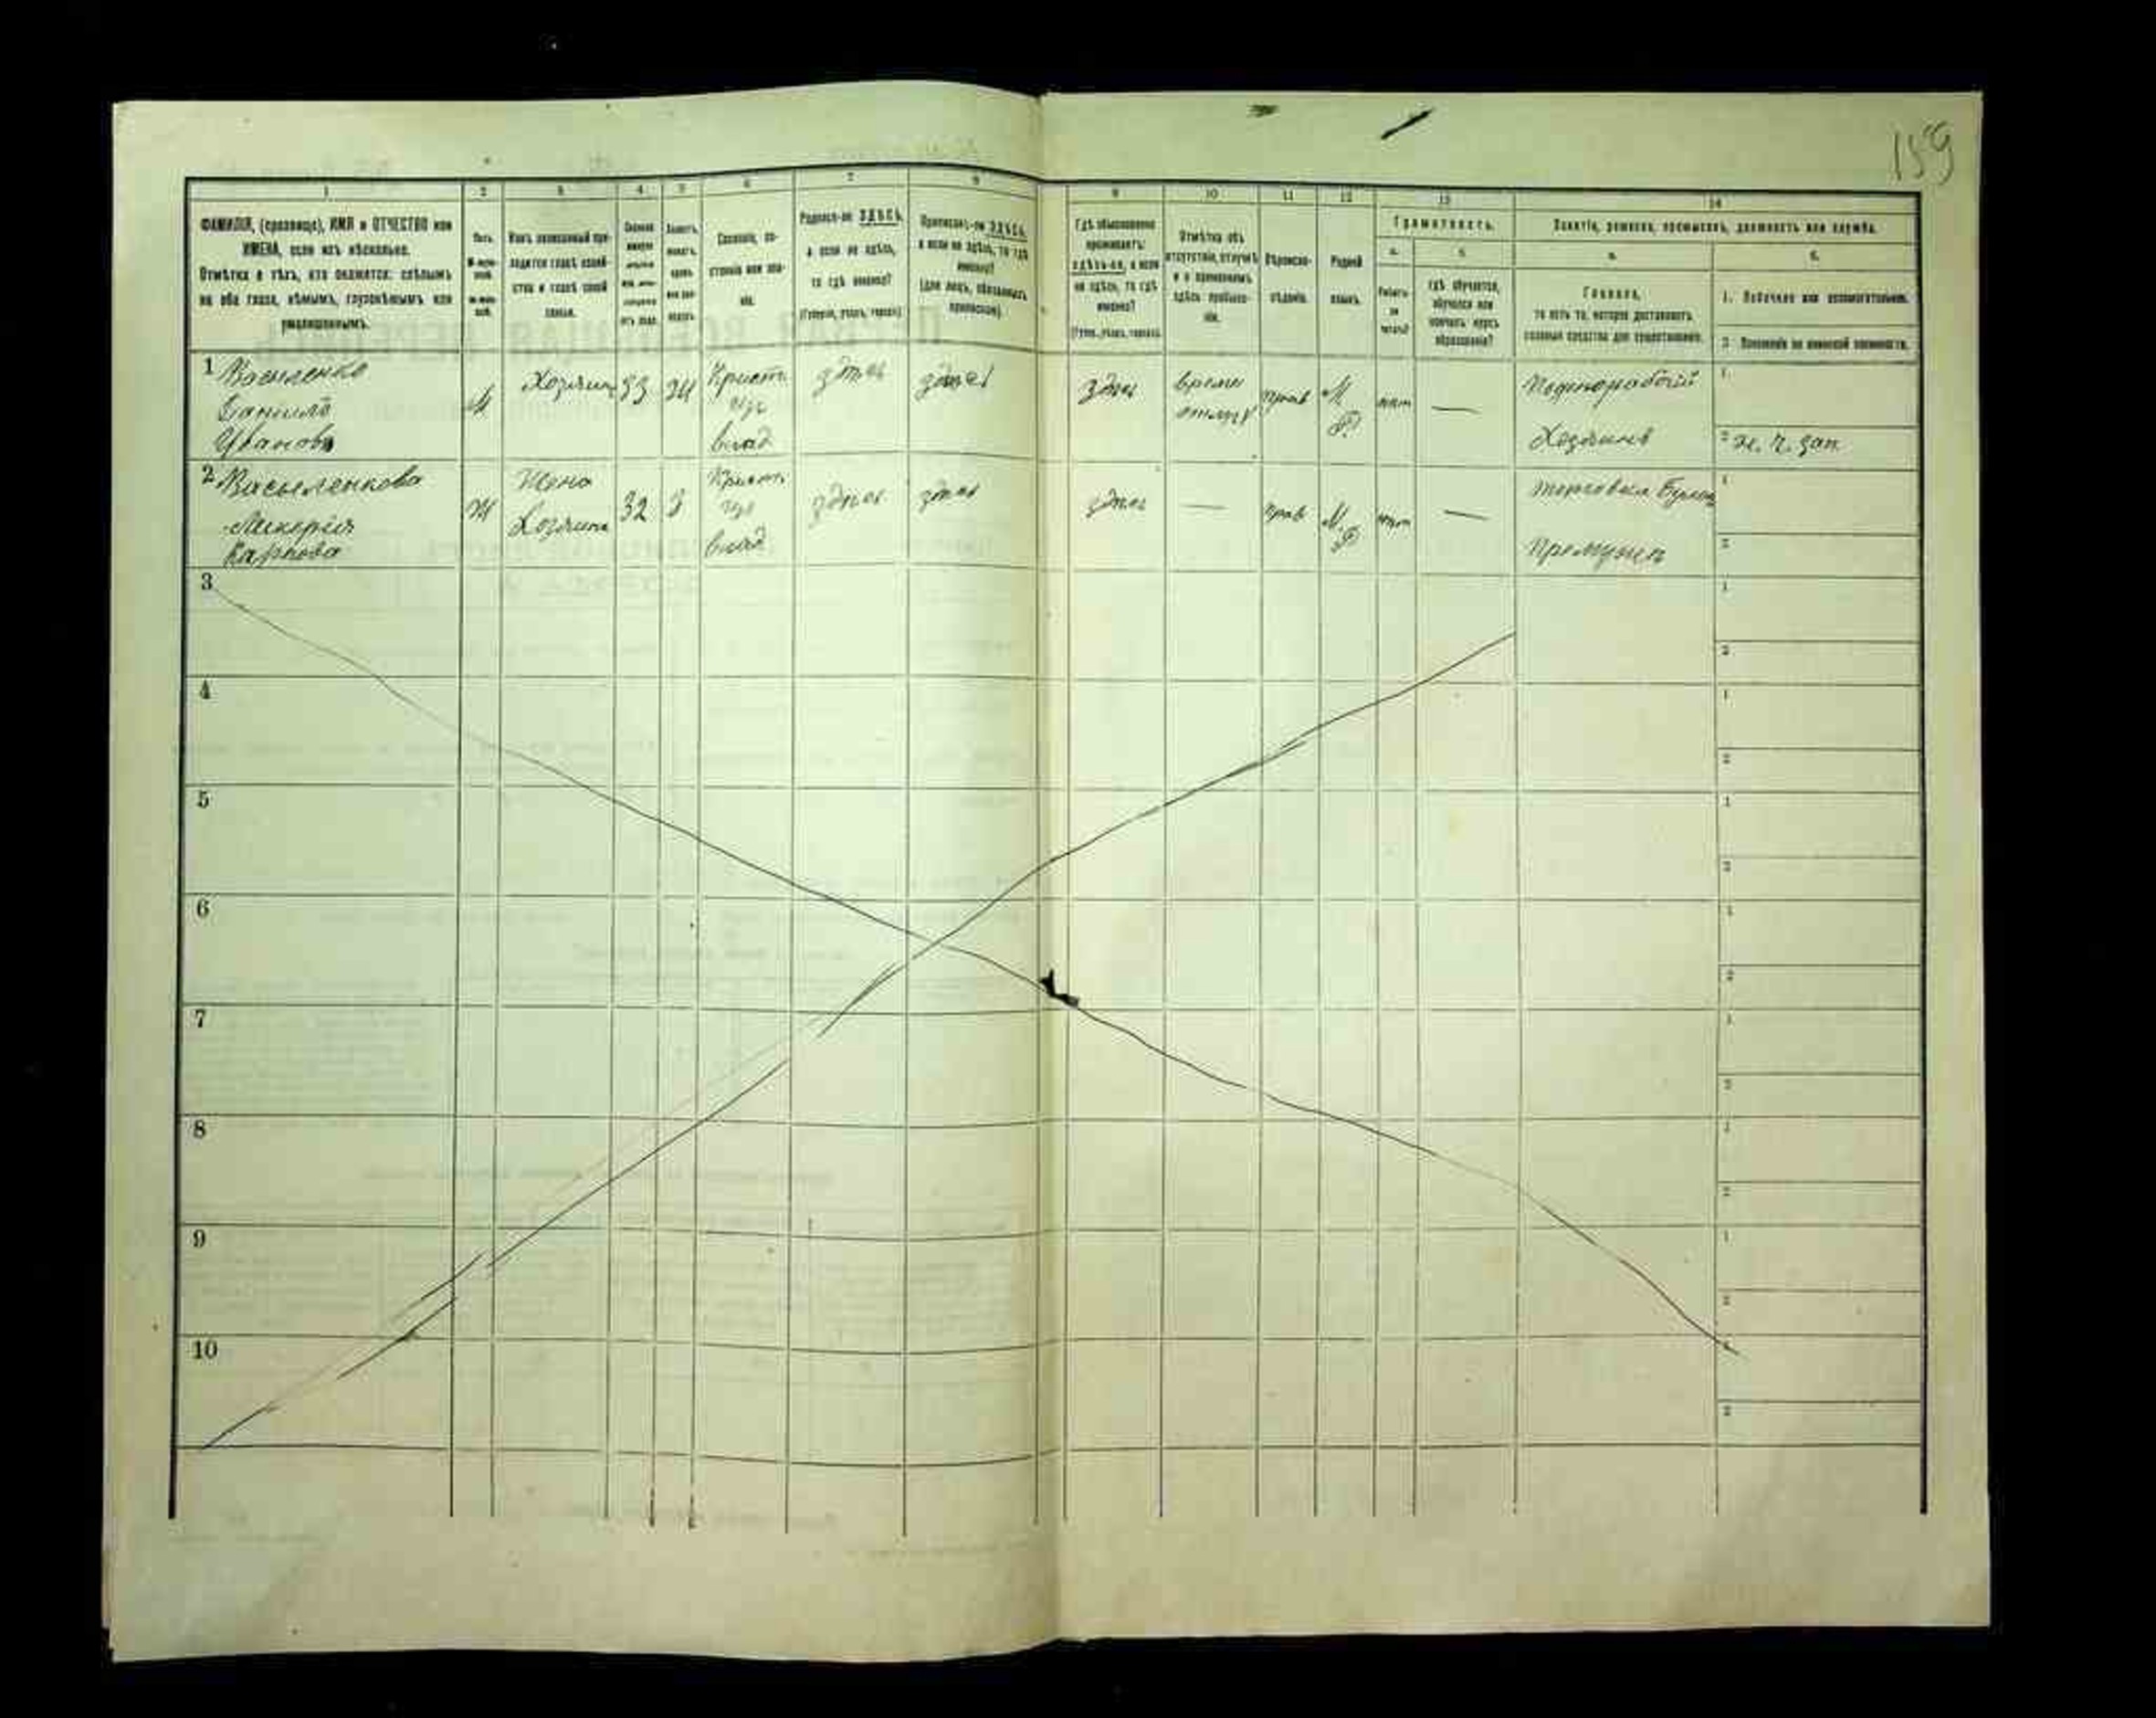 159
1 2 3 4 5 6 7 8 9 10 11 12 13 14
ФАМИЛІЯ, (прозвище), ИМЯ и ОТЧЕСТВО или
ИМЕНА, если ихъ нѣсколько.
Отмѣтка о тѣхъ, кто окажется: слѣпымъ
на оба глаза, нѣмымъ, глухонѣмымъ или
умалишеннымъ.
Полъ.
Какъ записанный при-
ходится главѣ хозяй-
ства и главѣ своей
семьи.
Сословіе, со-
стояніе или зва-
ніе.
Родился-ли ЗДѢСЬ,
а если не здѣсь,
то гдѣ именно?
(Губернія, уѣздъ, городъ).
Приписанъ-ли ЗДѢСЬ,
а если не здѣсь, то гдѣ
именно?
(для лицъ, обязанныхъ
припиской).
Гдѣ обыкновенно
проживаетъ:
здѣсь-ли, а если
не здѣсь, то гдѣ
именно?
(Губ., уѣздъ, городъ).
Отмѣтка объ
отсутствіи, отлучкѣ
и о временномъ
здѣсь пребыва-
ніи.
Вѣроиспо-
вѣданіе.
Родной
языкъ.
Грамотность.
а.
б.
Умѣетъ-
ли
читать?
гдѣ обучается,
обучался или
кончилъ курсъ
образованія?
Занятіе, ремесло, промыселъ, должность или служба.
а.
б.
Главное,
то есть то, которое доставляетъ
главныя средства для существованія.
1. Побочное или вспомогательное.
2. Положеніе по воинской повинности.
1 Василенко
Данило
Иванов
М
Хозяин
33
Ж
Крист
из
влад
здесь
здесь
здесь
времен
отлуч
прав
М
Р.
нет
—
Поденорабочий
Хозяинъ
1
2 н. ч. зап
2 Васыленкова
Карпова
Ж
Жена
Хозяина
32
З
Крист
из
влад
здесь
здесь
здесь
—
прав
М.
Р
нет
—
торговля
1
2
3
1
2
4
1
2
5
1
2
6
1
2
7
1
2
8
1
2
9
1
2
10
1
2